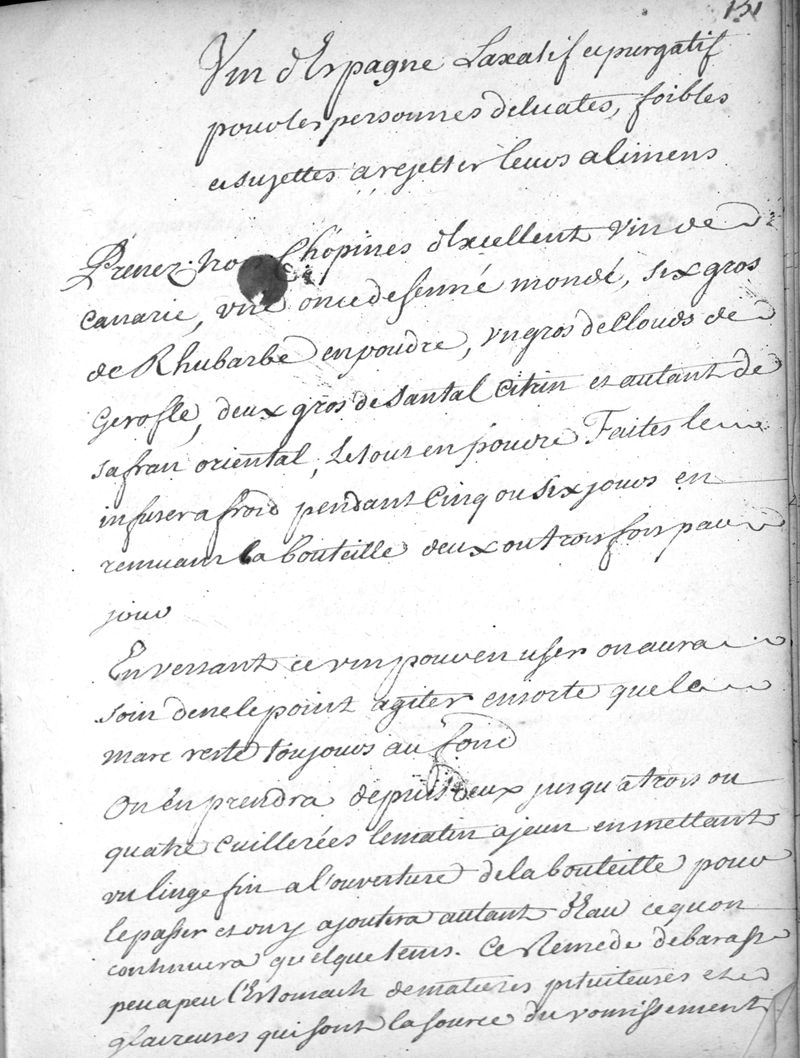 151
Vin d'Espagne Laxatif et purgatif
pour les personnes delicates, foibles
et sujettes a rejetter leurs alimens
Prenez Chopines d'Excellent Vin de
Canarie, vne once de senné mondé, six gros
de Rhubarbe en poudre, vn gros de Clouds de
Gerofle, deux gros de Santal Citrin et autant de
safran oriental, Le tout en poudre Faites le
infuser a froid pendant Cinq ou six jours en
remuant la bouteille deux ou trois fois par
jour
En versant ce vin pour en user on aura
soin de ne le point agiter ensorte que le
marc reste toujours au fond
On en prendra depuis deux jusqu'a trois ou
quatre Cuillerées le matin a jeun en mettant
vn linge fin a l'ouverture de la bouteille pour
le passer et on y ajoutera autant d'Eau ce qu'on
continuera quelque tems. Ce Remede debarasse
peu a peu l'Estomach de matieres pituiteuses et
glaireuses qui sont la source du vomissement